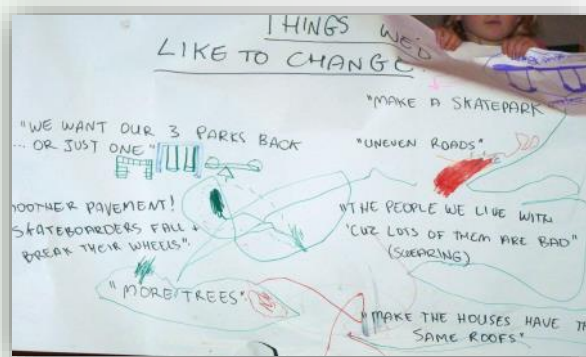 THINGS WE'D
LIKE TO CHANGE
"MAKE A SKATEPARK
"WE WANT OUR 3 PARKS BACK
... OR JUST ONE"
"UNEVEN ROADS"
OOTHER PAVEMENT!
SKATEBOARDERS FALL +
BREAK THEIR WHEELS".
"THE PEOPLE WE LIVE WITH
'CUZ LOTS OF THEM ARE BAD"
(SWEARING)
"MORE TREES"
"MAKE THE HOUSES HAVE TH
SAME ROOFS"